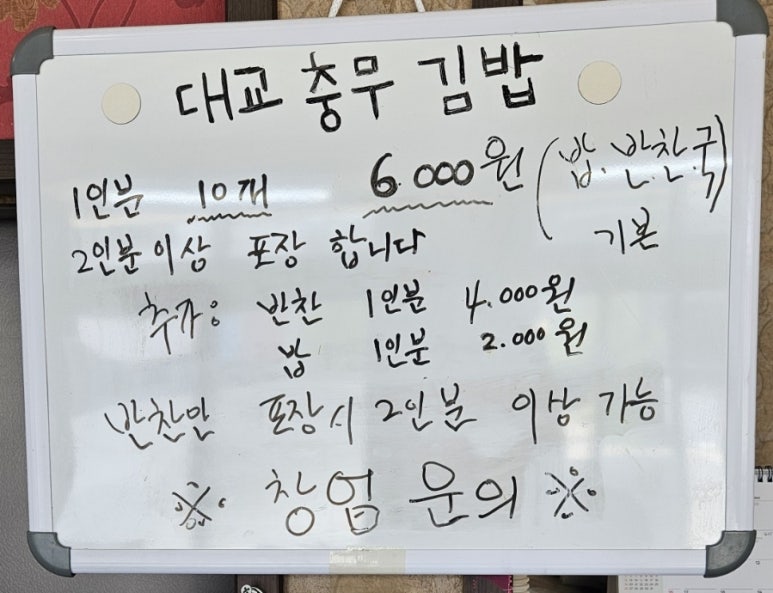 대교 충무 김밥
1인분 10개 6.000원 (밥.반찬.국)
기본
2인분 이상 포장 합니다
추가: 반찬 1인분 4.000원
밥 1인분 2.000원
반찬만 포장시 2인분 이상 가능
※ 창업 문의 ※